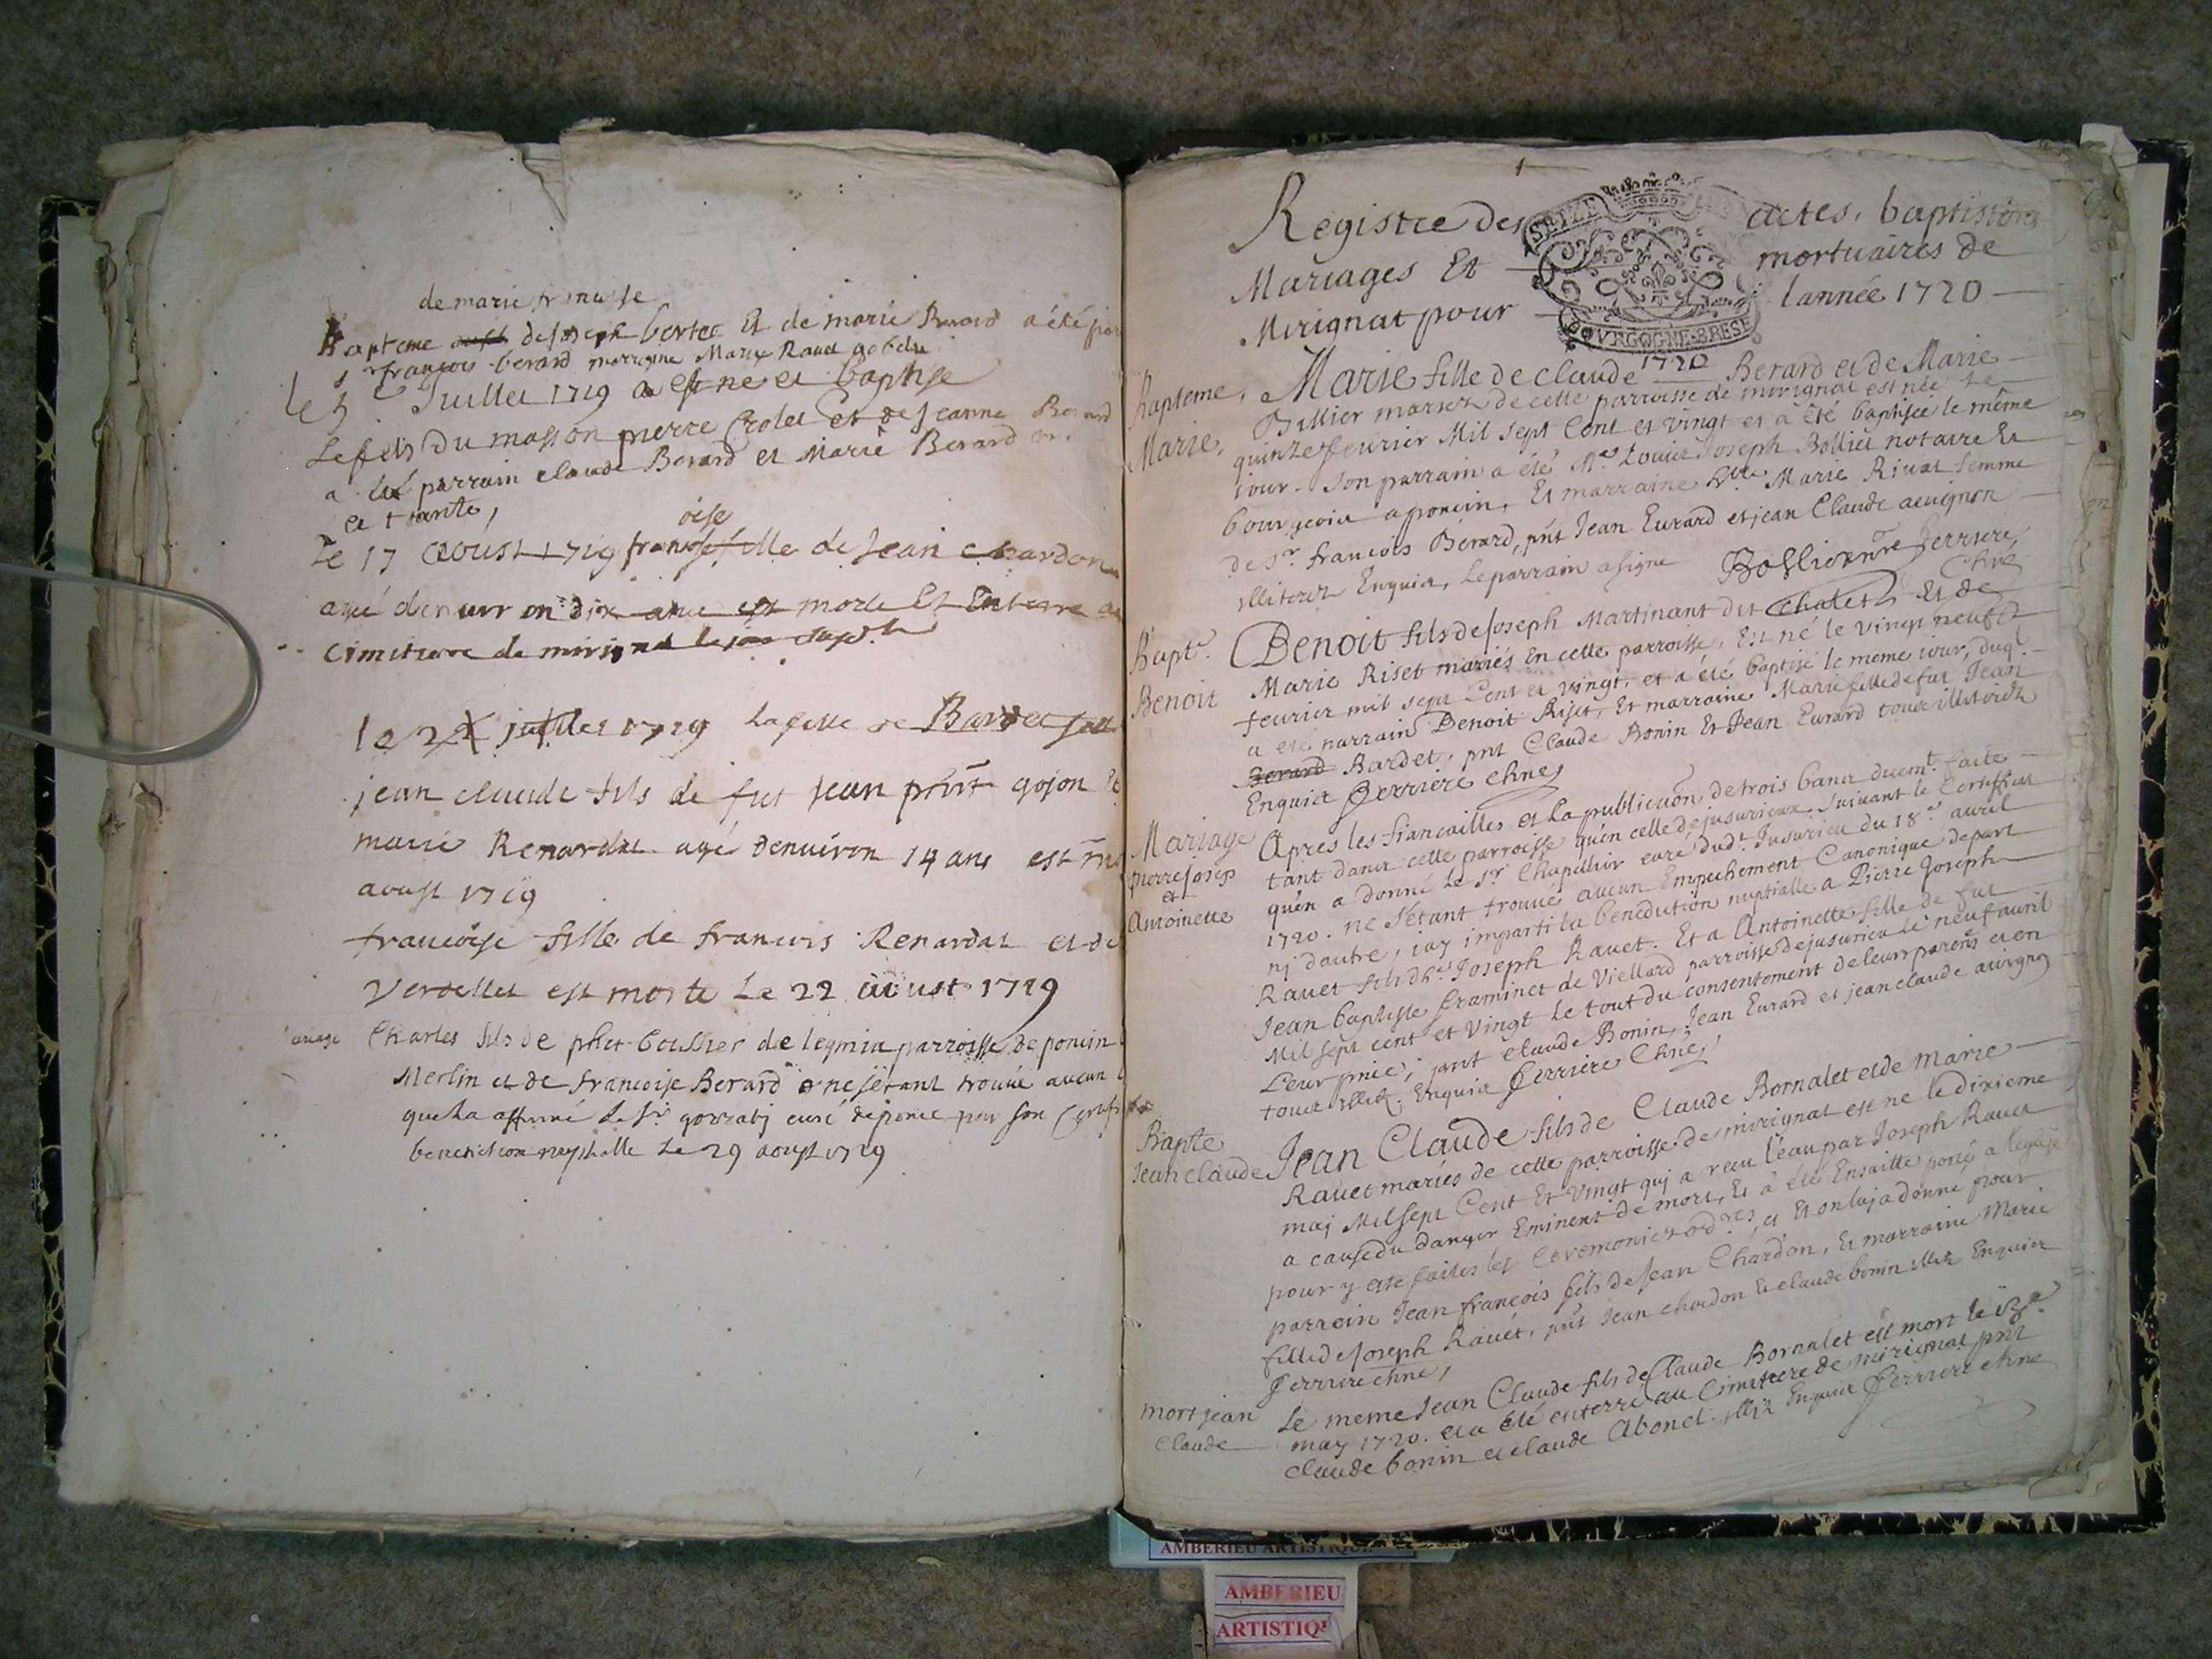 de marie
Bapteme de joseph berter Et de marie Berard a été par
s.r françois berard marraine Marie Ravet
le 5 Juillet 1719 a est ne et baptise
Le fils du masson pierre Crolet et de jeanne Berard
a été parrain claude Berard et Marie Berard
et tante,
oise
Le 17 aoust 1719 fille de Jean chardon
agé denviron dix ans est morte Et Enterre au
cimitierre de mirignat le jour
le 22 juillet 1719 la fille de Bardet
jean claude fils de fut jean gojon Et
marie Renardat agé denuiron 14 ans est
aoust 1719
francoise fille de francois Renardat et de
Verdellet est morte Le 22 aoust 1719
Mariage
Charles fils de phet boussier de leymia parroisse de poncin
Merlin et de francoise Berard ne sétant trouué aucun
que la affirmé le sr gorraty curé de ponce par son Certif
benediction nuptialle Le 29 aoust 1719
Registre des actes, baptistaires
Mariages Et mortuaires de
Mirignat pour lannée 1720
SEIZE
BOVRGOGNE·BRESE
1720
Bapteme,
Marie,
Marie fille de claude Berard et de Marie
Billier mariez de cette parroisse de mirignat est née Le
quinze feurier Mil sept Cent et vingt et a été baptisée le même
iour. Son parrain a été Me Louis Joseph Bolliet notaire Et
bourgeois a poncin, Et marraine Dlle Marie Rivat femme
de Sr francois Bérard, pnt Jean Eurard et jean Claude auignon
illiterez Enquis, Le parrain a signe Bollietnre Ferriere,
Chne
Bapte.
Benoit
Benoit fils de Joseph Martinant dit Chalet Et de
Marie Riset mariés En cette parroisse, Est né le vingt neuf
feurier mil sept Cent et vingt, et a été baptisé le meme iour, duql.
a eté parrain Benoit Riset, Et marraine Marie fille de fut Jean
Berard Bardet, pnt Claude Bonin Et Jean Eurard tous illiterez
Enquis Ferriere chne
Mariage
pierre joseph
et
Antoinette
Apres les fiancailles et La publication de trois bans duemt. faite
tant dans cette parroisse quén celle de jusurieux, suiuant le Certifficat
quén a donné Le Sr Chapelluir curé dudt. Jusurieu du 18e aurill
1720. ne sétant trouué aucun Empechement Canonique de part
nj dautre, iay imparti la benediction nuptialle a Pierre Joseph
Rauet fils dhe Joseph Rauet. Et a Antoinette fille de fut
Jean baptiste Framinet de Viellard parroisse de jusurieu Le neuf auril
Mil sept cent et Vingt Le tout du consentement de leurs parens et en
Leur pnce, pnt claude Bonin, Jean Eurard et jean claude auignon
tous illitz. Enquis Ferriere Chne,
Bapte
Jean claude
Jean Claude fils de Claude Bornalet et de Marie
Rauet mariés de cette parroisse de mirignat est ne le dixieme
maj Mil sept Cent Et Vingt quj a recu léau par Joseph Rauet
a cause du danger Eminent de mort, Et a été Ensuitte porté a léglise
pour y etre faites les Ceremonies ordres, et Et on luj a donné pour
parrain Jean françois fils de Jean Chardon, Et marraine Marie
fille de Joseph Rauet, pnt Jean chardon Et claude bonin illitz Enquier
Ferriere chne,
mort jean
Claude
Le meme Jean Claude fils de Claude Bornalet est mort le
may 1720. et a été enterré au Cimitiere de mirignat pnt
claude bonin et claude Abonel illitz Enquis Ferriere chne
AMBERIEU ARTISTIQ
AMBERIEU
ARTISTIQ